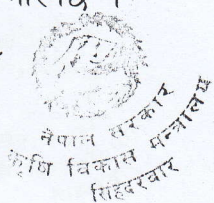 नेपाल सरकार
कृषि विकास मन्त्रालय
सिंहदरबार